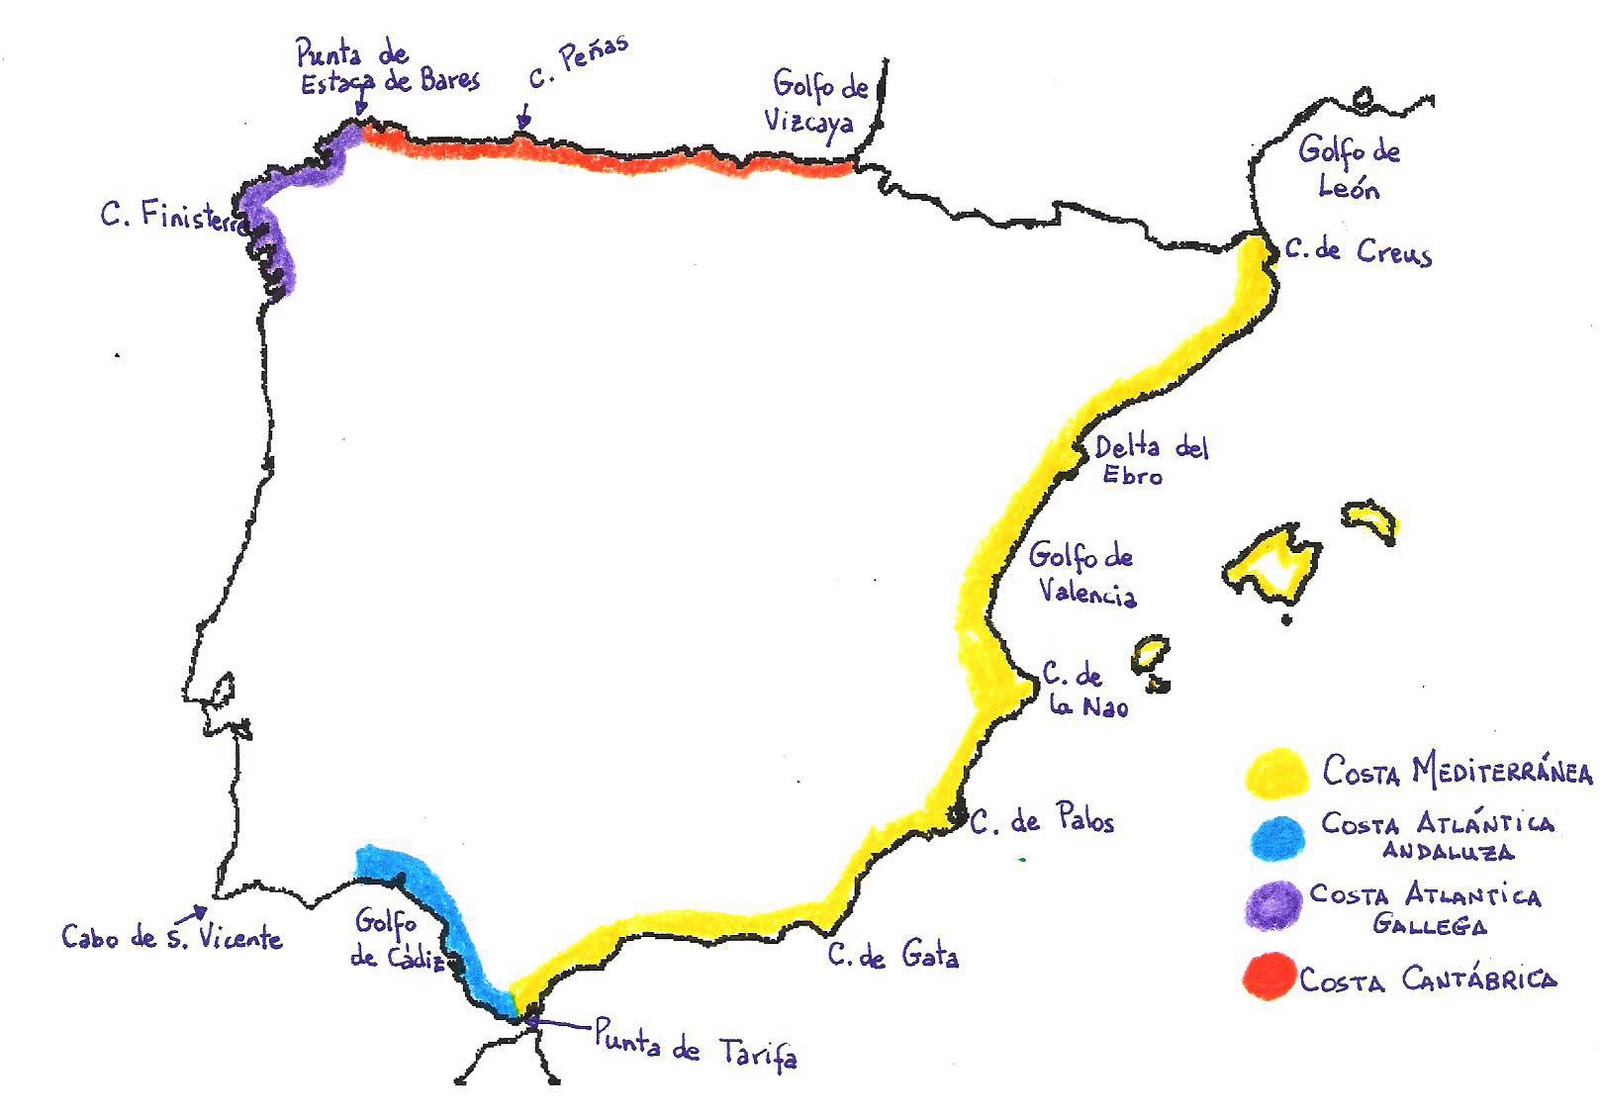 Punta de
Estaca de Bares
C. Peñas
Golfo de
Vizcaya
Golfo de
León
C. Finisterre
C. de Creus
Delta del
Ebro
Golfo de
Valencia
C. de
la Nao
C. de Palos
Cabo de S. Vicente
Golfo
de Cádiz
C. de Gata
Punta de Tarifa
COSTA MEDITERRÁNEA
COSTA ATLÁNTICA
ANDALUZA
COSTA ATLANTICA
GALLEGA
COSTA CANTÁBRICA